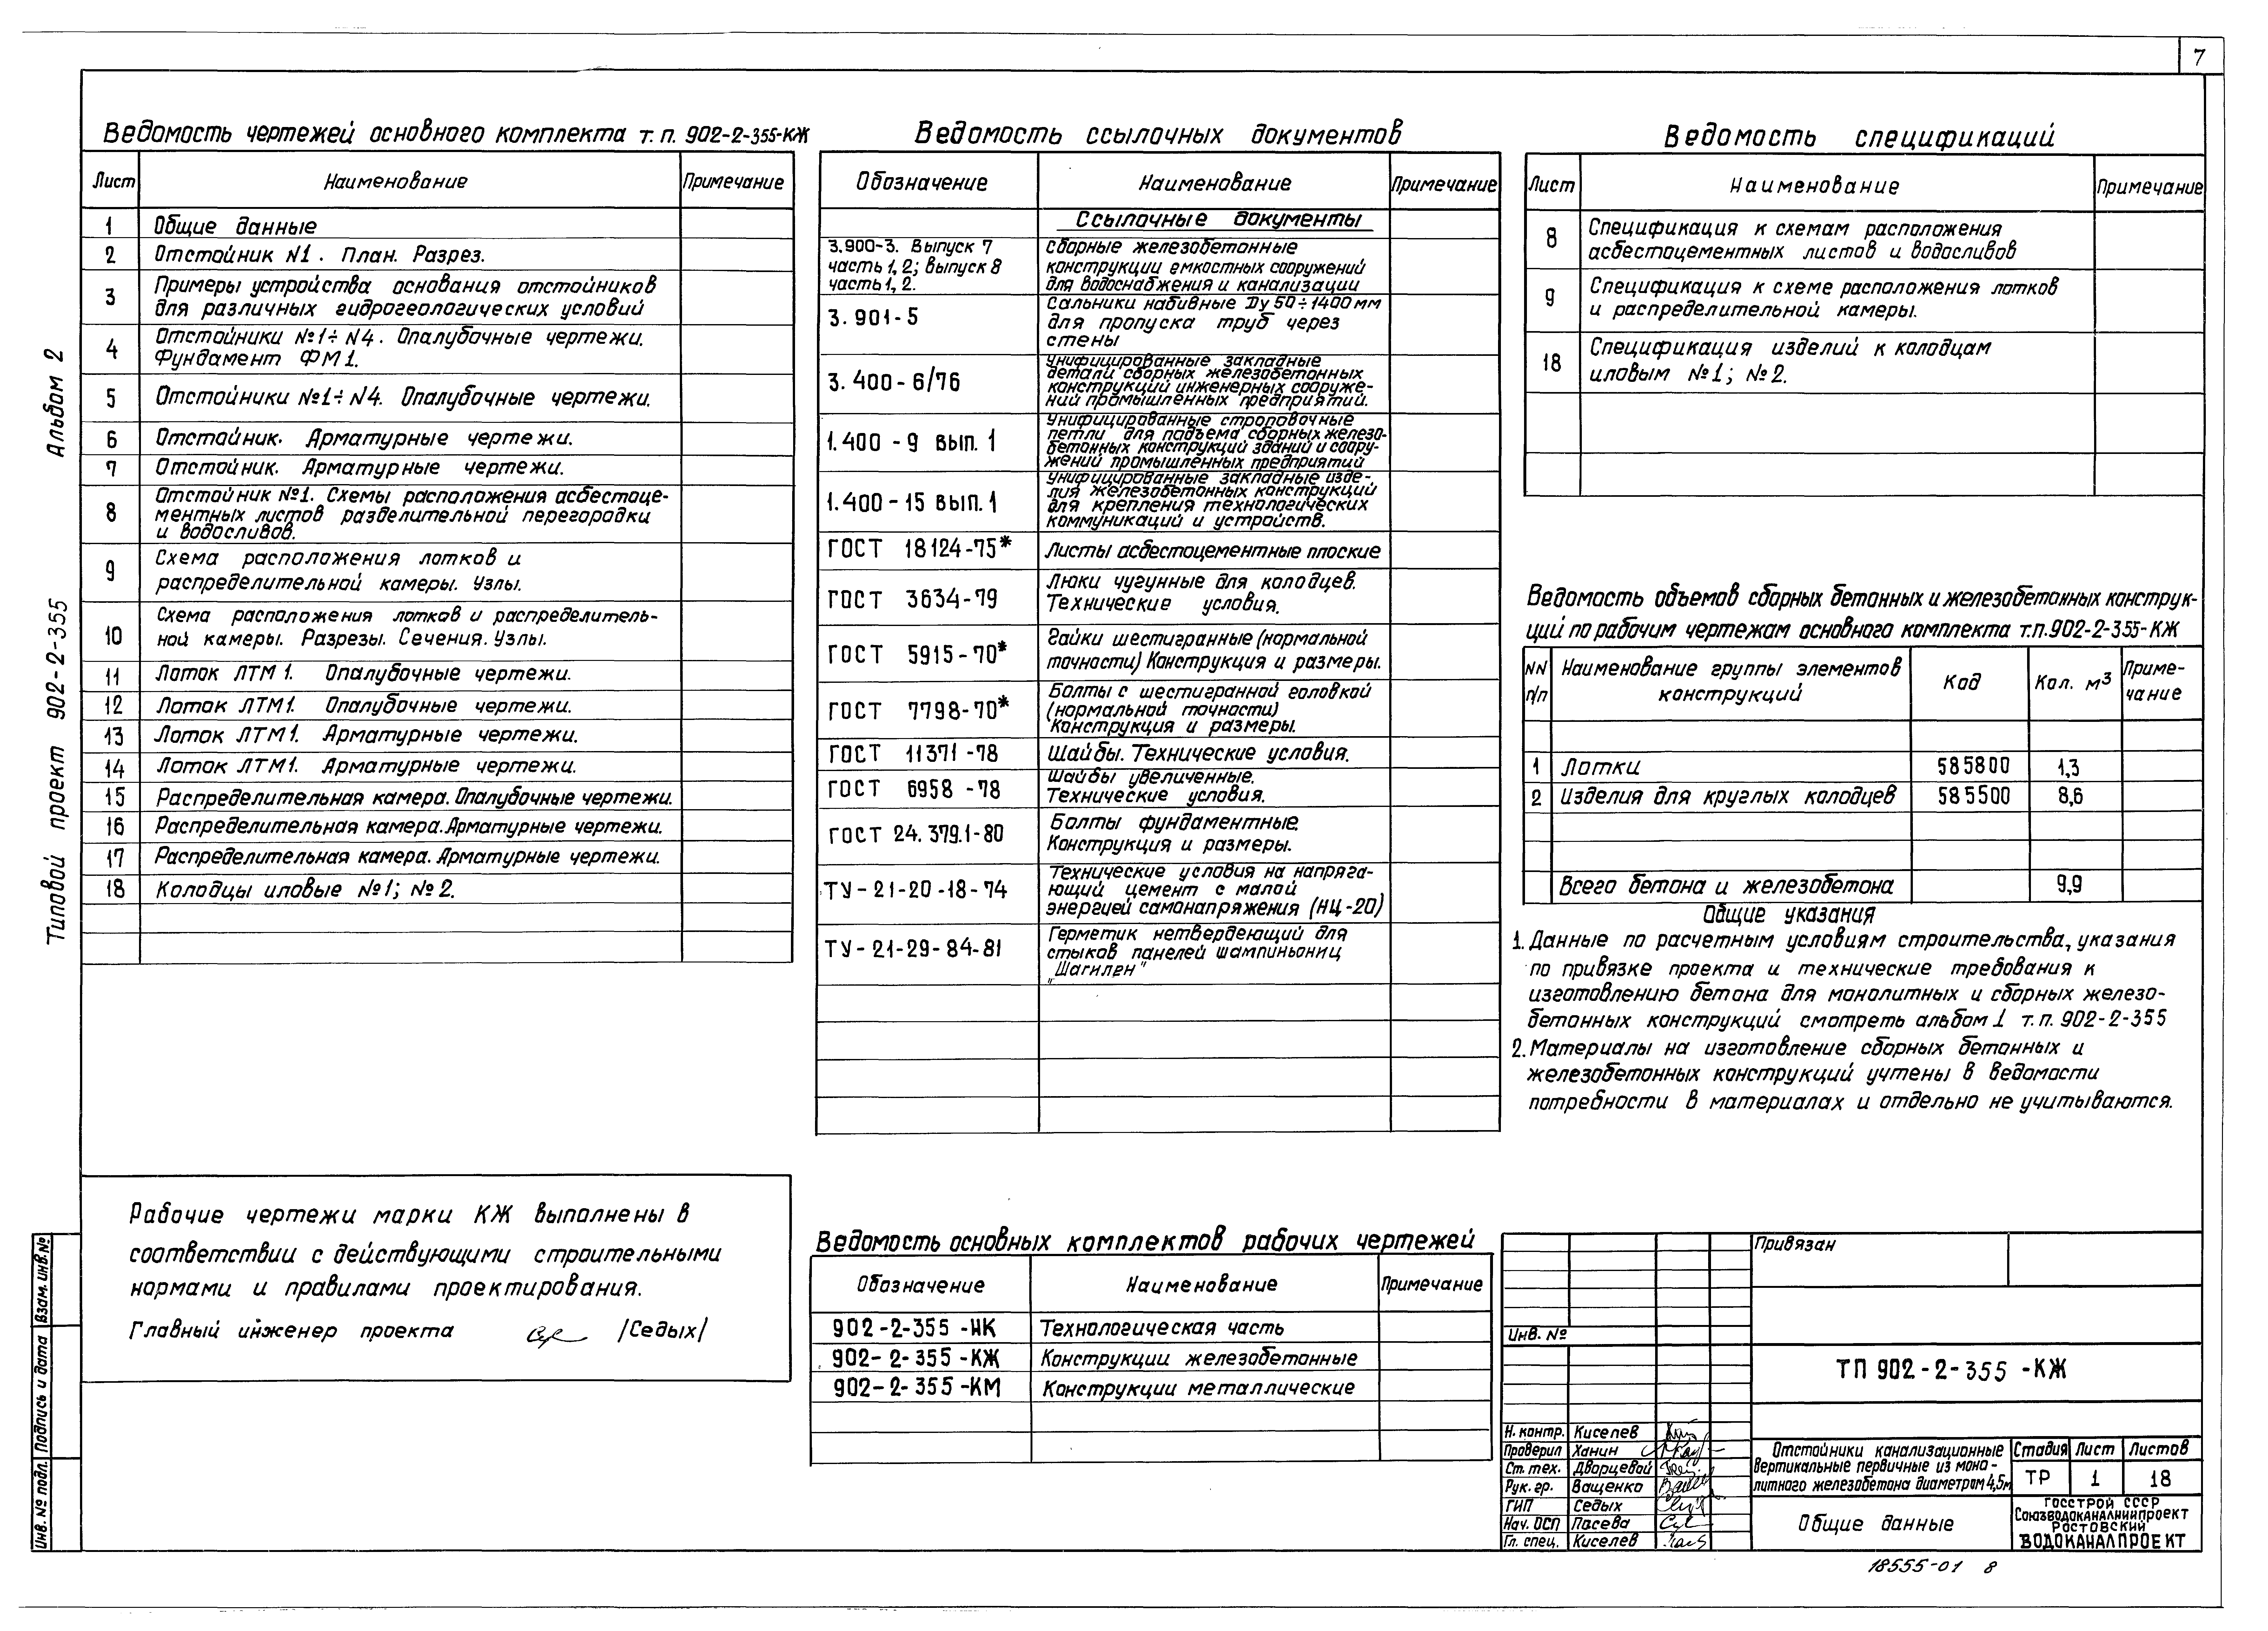 7
Ведомость чертежей основного комплекта т.п. 902-2-355-КЖ
Лист Наименование Примечание
1 Общие данные
2 Отстойник №1. План. Разрез.
3 Примеры устройства основания отстойников
для различных гидрогеологических условий
4 Отстойники №1÷№4. Опалубочные чертежи.
Фундамент ФМ1.
5 Отстойники №1÷№4. Опалубочные чертежи.
6 Отстойник. Арматурные чертежи.
7 Отстойник. Арматурные чертежи.
8 Отстойник №1. Схемы расположения асбестоце-
ментных листов разделительной перегородки
и водосливов.
9 Схема расположения лотков и
распределительной камеры. Узлы.
10 Схема расположения лотков и распределитель-
ной камеры. Разрезы. Сечения. Узлы.
11 Лоток ЛТМ1. Опалубочные чертежи.
12 Лоток ЛТМ1. Опалубочные чертежи.
13 Лоток ЛТМ1. Арматурные чертежи.
14 Лоток ЛТМ1. Арматурные чертежи.
15 Распределительная камера. Опалубочные чертежи.
16 Распределительная камера. Арматурные чертежи.
17 Распределительная камера. Арматурные чертежи.
18 Колодцы иловые №1; №2.
Рабочие чертежи марки КЖ выполнены в
соответствии с действующими строительными
нормами и правилами проектирования.
Главный инженер проекта /Седых/
Ведомость ссылочных документов
Обозначение Наименование Примечание
Ссылочные документы
3.900-3. Выпуск 7
часть 1, 2; выпуск 8
часть 1, 2.
Сборные железобетонные
конструкции емкостных сооружений
для водоснабжения и канализации
3.901-5
Сальники набивные Ду 50÷1400 мм
для пропуска труб через
стены
3.400-6/76
Унифицированные закладные
детали сборных железобетонных
конструкций инженерных сооруже-
ний промышленных предприятий.
1.400-9 вып. 1
Унифицированные строповочные
петли для подъема сборных железо-
бетонных конструкций зданий и соору-
жений промышленных предприятий
1.400-15 вып. 1
Унифицированные закладные изде-
лия железобетонных конструкций
для крепления технологических
коммуникаций и устройств.
ГОСТ 18124-75* Листы асбестоцементные плоские
ГОСТ 3634-79
Люки чугунные для колодцев.
Технические условия.
ГОСТ 5915-70*
Гайки шестигранные (нормальной
точности) Конструкция и размеры.
ГОСТ 7798-70*
Болты с шестигранной головкой
(нормальной точности)
Конструкция и размеры.
ГОСТ 11371-78 Шайбы. Технические условия.
ГОСТ 6958-78
Шайбы увеличенные.
Технические условия.
ГОСТ 24.379.1-80
Болты фундаментные.
Конструкция и размеры.
ТУ-21-20-18-74
Технические условия на напряга-
ющий цемент с малой
энергией самонапряжения (НЦ-20)
ТУ-21-29-84-81
Герметик нетвердеющий для
стыков панелей шампиньониц
"Шагилен"
Ведомость основных комплектов рабочих чертежей
Обозначение Наименование Примечание
902-2-355-НК Технологическая часть
902-2-355-КЖ Конструкции железобетонные
902-2-355-КМ Конструкции металлические
Ведомость спецификаций
Лист Наименование Примечание
8 Спецификация к схемам расположения
асбестоцементных листов и водосливов
9 Спецификация к схеме расположения лотков
и распределительной камеры.
18 Спецификация изделий к колодцам
иловым №1; №2.
Ведомость объемов сборных бетонных и железобетонных конструк-
ций по рабочим чертежам основного комплекта т.п. 902-2-355-КЖ
NN
п/п
Наименование группы элементов
конструкций
Код
Кол. м3
Приме-
чание
1 Лотки 585800 1,3
2 Изделия для круглых колодцев 585500 8,6
Всего бетона и железобетона 9,9
Общие указания
1. Данные по расчетным условиям строительства, указания
по привязке проекта и технические требования к
изготовлению бетона для монолитных и сборных железо-
бетонных конструкций смотреть альбом 1 т.п. 902-2-355
2. Материалы на изготовление сборных бетонных и
железобетонных конструкций учтены в ведомости
потребности в материалах и отдельно не учитываются.
Привязан
Инв. №
ТП 902-2-355-КЖ
Н. контр. Киселев
Проверил Ханин
Ст. тех. Дворцевой
Рук. гр. Ващенко
ГИП Седых
Нач. ОСП Посева
Гл. спец. Киселев
Отстойники канализационные
вертикальные первичные из моно-
литного железобетона диаметром 4,5м
Стадия Лист Листов
ТР 1 18
Общие данные
ГОССТРОЙ СССР
Союзводоканалниипроект
Ростовский
ВОДОКАНАЛПРОЕКТ
18555-01 8
Альбом 2
Типовой проект 902-2-355
Взам. инв. №
Подпись и дата
Инв. № подл.